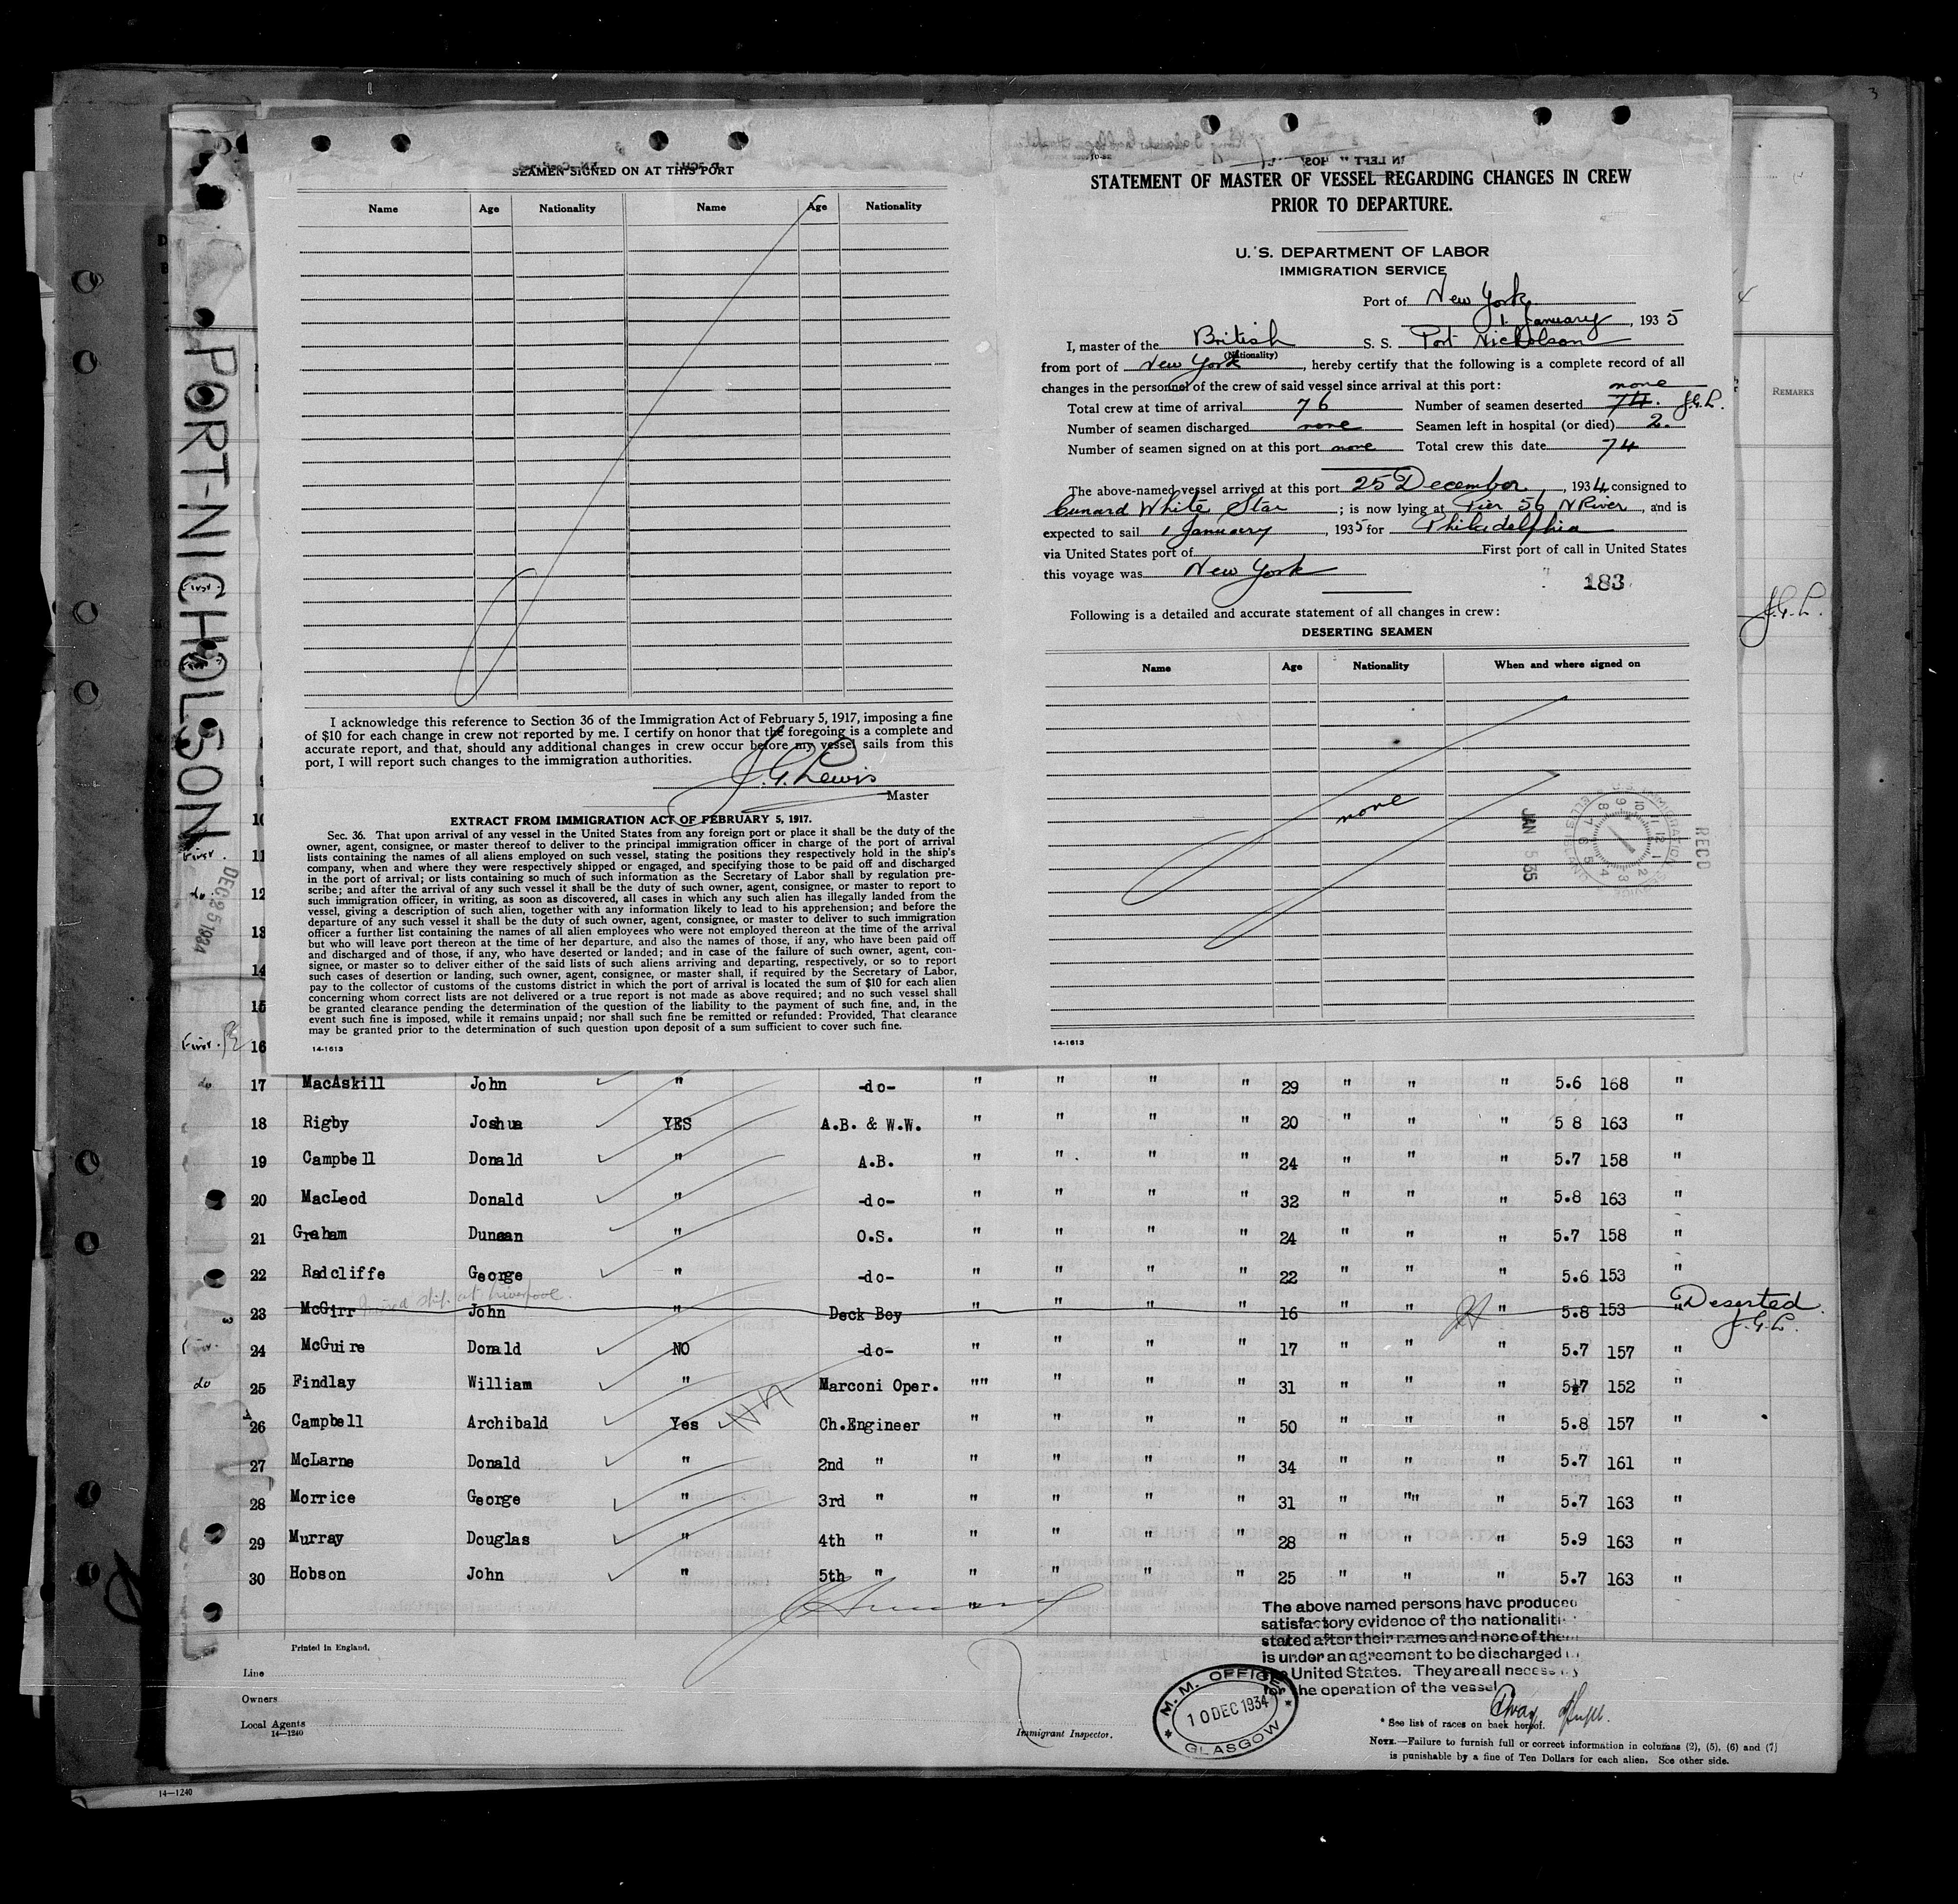 PORT-NICHOLSON
DEC 25 1934
SEAMEN SIGNED ON AT THIS PORT
Name Age Nationality Name Age Nationality
I acknowledge this reference to Section 36 of the Immigration Act of February 5, 1917, imposing a fine
of $10 for each change in crew not reported by me. I certify on honor that the foregoing is a complete and
accurate report, and that, should any additional changes in crew occur before my vessel sails from this
port, I will report such changes to the immigration authorities.
J. G. Lewis
Master
EXTRACT FROM IMMIGRATION ACT OF FEBRUARY 5, 1917.
Sec. 36. That upon arrival of any vessel in the United States from any foreign port or place it shall be the duty of the
owner, agent, consignee, or master thereof to deliver to the principal immigration officer in charge of the port of arrival
lists containing the names of all aliens employed on such vessel, stating the positions they respectively hold in the ship's
company, when and where they were respectively shipped or engaged, and specifying those to be paid off and discharged
in the port of arrival; or lists containing so much of such information as the Secretary of Labor shall by regulation pre-
scribe; and after the arrival of any such vessel it shall be the duty of such owner, agent, consignee, or master to report to
such immigration officer, in writing, as soon as discovered, all cases in which any such alien has illegally landed from the
vessel, giving a description of such alien, together with any information likely to lead to his apprehension; and before the
departure of any such vessel it shall be the duty of such owner, agent, consignee, or master to deliver to such immigration
officer a further list containing the names of all alien employees who were not employed thereon at the time of the arrival
but who will leave port thereon at the time of her departure, and also the names of those, if any, who have been paid off
and discharged and of those, if any, who have deserted or landed; and in case of the failure of such owner, agent, con-
signee, or master so to deliver either of the said lists of such aliens arriving and departing, respectively, or so to report
such cases of desertion or landing, such owner, agent, consignee, or master shall, if required by the Secretary of Labor,
pay to the collector of customs of the customs district in which the port of arrival is located the sum of $10 for each alien
concerning whom correct lists are not delivered or a true report is not made as above required; and no such vessel shall
be granted clearance pending the determination of the question of the liability to the payment of such fine, and, in the
event such fine is imposed, while it remains unpaid; nor shall such fine be remitted or refunded: Provided, That clearance
may be granted prior to the determination of such question upon deposit of a sum sufficient to cover such fine.
14-1613
STATEMENT OF MASTER OF VESSEL REGARDING CHANGES IN CREW
PRIOR TO DEPARTURE.
U. S. DEPARTMENT OF LABOR
IMMIGRATION SERVICE
Port of New York
1 January, 1935
I, master of the British S. S. Port Nicholson
(Nationality)
from port of New York, hereby certify that the following is a complete record of all
changes in the personnel of the crew of said vessel since arrival at this port:
none
Total crew at time of arrival 76 Number of seamen deserted 74. J.G.L.
Number of seamen discharged none Seamen left in hospital (or died) 2.
Number of seamen signed on at this port none Total crew this date 74
The above-named vessel arrived at this port 25 December, 1934 consigned to
Cunard White Star; is now lying at Pier 56 N River, and is
expected to sail 1 January, 1935 for Philadelphia
via United States port of First port of call in United States
this voyage was New York
183
Following is a detailed and accurate statement of all changes in crew:
DESERTING SEAMEN
Name Age Nationality When and where signed on
none
RECD
JAN 5 35
14-1613
REMARKS
J.G.L.
10
First. 11
do 12
13
14
15
First. 16
do 17 MacAskill John " -do- " " " " 29 " " " 5.6 168 "
18 Rigby Joshua YES A.B. & W.W. " " " " 20 " " " 5 8 163 "
19 Campbell Donald " A.B. " " " " 24 " " " 5.7 158 "
20 MacLeod Donald " -do- " " " " 32 " " " 5.8 163 "
21 Graham Duncan " O.S. " " " " 24 " " " 5.7 158 "
22 Radcliffe George " -do- " " " " 22 " " " 5.6 153 "
Joined ship at Liverpool.
23 McGirr John " Deck Boy " " " " 16 " " " 5.8 153 " Deserted.
J.G.L.
First. 24 McGuire Donald NO -do- " " " " 17 " " " 5.7 157 "
do 25 Findlay William " Marconi Oper. "" " " " 31 " " " 5½7 152 "
26 Campbell Archibald Yes Ch.Engineer " " " " 50 " " " 5.8 157 "
27 McLarne Donald " 2nd " " " " " 34 " " " 5.7 161 "
28 Morrice George " 3rd " " " " " 31 " "" " 5.7 163 "
29 Murray Douglas " 4th " " " " " 28 " " " 5.9 163 "
30 Hobson John " 5th " " " " " 25 " " " 5.7 163 "
The above named persons have produced
satisfactory evidence of the nationaliti
stated after their names and none of them
is under an agreement to be discharged in
the United States. They are all necessary
for the operation of the vessel
Printed in England.
Line
Owners
Local Agents
14-1240
Immigrant Inspector.
M. M. OFFICE
10 DEC 1934
GLASGOW
* See list of races on back hereof.
NOTE.—Failure to furnish full or correct information in columns (2), (5), (6) and (7)
is punishable by a fine of Ten Dollars for each alien. See other side.
14-1240